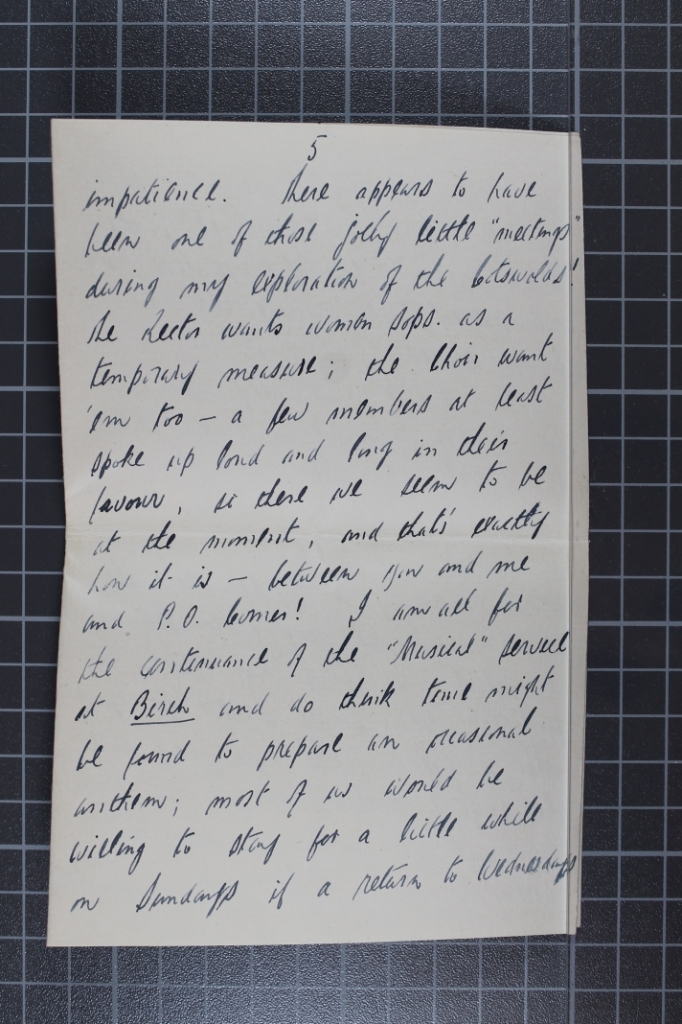 5
impatience. There appears to have
been one of those jolly little "meetings"
during my exploration of the Cotswolds!
The Rector wants women sops. as a
temporary measure; the Choir want
'em too — a few members at least
spoke up loud and long in their
favour, so there we seem to be
at the moment, and that's exactly
how it is — between you and me
and P.O. Comes! I am all for
the continuance of the "Musical" service
at Birch and do think time might
be found to prepare an occasional
anthem; most of us would be
willing to stay for a little while
on Sundays if a return to Wednesdays